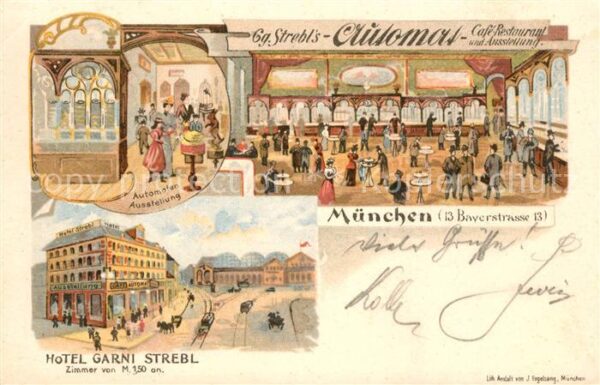 Gg. Strebl's - Automat - Café-Restaurant
und Ausstellung.
Automaten
Ausstellung
München (13 Bayerstrasse 13)
Viele Grüße!
Hotel Strebl Hotel
Ausstellung
Automat
HOTEL GARNI STREBL
Zimmer von M. 1,50 an.
Lith. Anstalt von J. Engelsang, München